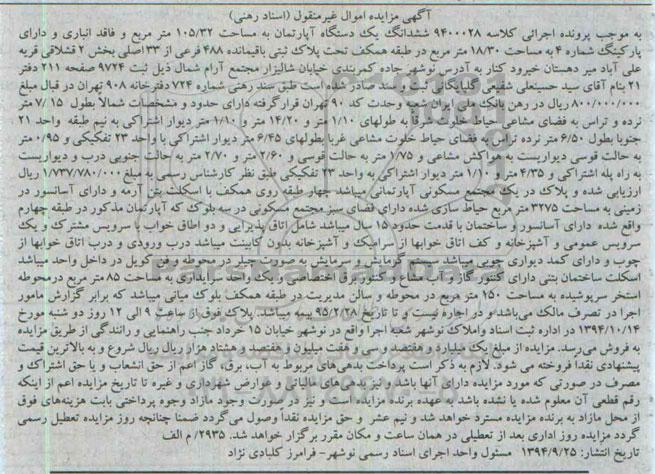 آگهی مزایده اموال غیرمنقول (اسناد رهنی)
به موجب پرونده اجرائی کلاسه ۹۴۰۰۰۲۸ ششدانگ یک دستگاه آپارتمان به مساحت ۱۰۵/۳۲ متر مربع و فاقد انباری و دارای
پارکینگ شماره ۴ به مساحت ۱۸/۳۰ متر مربع در طبقه همکف تحت پلاک ثبتی باقیمانده ۴۸۸ فرعی از ۳۳ اصلی بخش ۲ قشلاقی قریه
علی آباد میر دهستان خیرود کنار به آدرس نوشهر جاده کمربندی خیابان شالیزار مجتمع آرام شمال ذیل ثبت ۹۷۲۴ صفحه ۲۱۱ دفتر
۲۱ بنام آقای سید حسینعلی شفیعی گلپایگانی ثبت و سند صادر شده است طبق سند رهنی شماره ۷۲۴ دفترخانه ۹۰۸ تهران در قبال مبلغ
۸۰۰/۰۰۰/۰۰۰ ریال در رهن بانک ملی ایران شعبه وحدت کد ۹۰ تهران قرار گرفته دارای حدود و مشخصات شمالا بطول ۷/۱۵ متر
نرده و تراس به فضای مشاعی حیاط خلوت شرقا به طولهای ۱/۱۰ متر و ۱۴/۲۰ متر و ۱/۱۰ متر دیوار اشتراکی به نیم طبقه واحد ۲۱
جنوبا بطول ۶/۵۰ متر نرده تراس به فضای حیاط خلوت مشاعی غربا بطولهای ۶/۴۵ متر دیوار اشتراکی با واحد ۲۳ تفکیکی و ۰/۹۵ متر
به حالت قوسی دیواریست به هواکش مشاعی و ۱/۷۵ متر به حالت قوسی و ۲/۶۰ متر و ۲/۷۰ متر به حالت جنوبی درب و دیواریست
به راه پله اشتراکی و ۴/۳۵ متر و ۱/۱۰ متر دیوار اشتراکی به واحد ۲۳ تفکیکی طبق نظر کارشناس رسمی به مبلغ ۱/۷۳۷/۷۸۰/۰۰۰ ریال
ارزیابی شده و پلاک در یک مجتمع مسکونی آپارتمانی میباشد چهار طبقه روی همکف با اسکلت بتن آرمه و دارای آسانسور در
زمینی به مساحت ۳۲۷۵ متر مربع حیاط سازی شده دارای فضای سبز مجتمع مسکونی در سه بلوک که آپارتمان مذکور در طبقه چهارم
واقع شده دارای آسانسور و ساختمان با قدمت حدود ۱۵ سال میباشد شامل اتاق پذیرایی و دو اطاق خواب با سرویس مشترک و یک
سرویس عمومی و آشپزخانه و کف اتاق خوابها از سرامیک و آشپزخانه بدون کابینت میباشد درب ورودی و درب اتاق خوابها از
چوب و دارای کمد دیواری چوبی میباشد سیستم گرمایش و سرمایش به صورت چیلر در محوطه و فن کویل در داخل واحد میباشد
اسکلت ساختمان بتنی دارای کنتور گاز و آب مشاع و کنتور برق اختصاصی و یک واحد سرایداری به مساحت ۸۵ متر مربع در محوطه
استخر سرپوشیده به مساحت ۱۵۰ متر مربع در محوطه و سالن مدیریت در طبقه همکف بلوک میانی میباشد که برابر گزارش مامور
اجرا در تصرف مالک می‌باشد و در اجاره نیست و تا تاریخ ۹۵/۲/۲۸ بیمه میباشد. پلاک فوق از ساعت ۹ الی ۱۲ روز دو شنبه مورخ
۱۳۹۴/۱۰/۱۴ در اداره ثبت اسناد واملاک نوشهر شعبه اجرا واقع در نوشهر خیابان ۱۵ خرداد جنب راهنمایی و رانندگی از طریق مزایده
به فروش می‌رسد. مزایده از مبلغ یک میلیارد و هفتصد و سی و هفت میلیون و هفتصد و هشتاد هزار ریال ریال شروع و به بالاترین قیمت
پیشنهادی نقداً فروخته می شود. لازم به ذکر است پرداخت بدهی‌های مربوط به آب، برق، گاز اعم از حق انشعاب و یا حق اشتراک و
مصرف در صورتی که مورد مزایده دارای آنها باشد و نیز بدهی های مالیاتی و عوارض شهرداری و غیره تا تاریخ مزایده اعم از اینکه
رقم قطعی آن معلوم شده یا نشده باشد به عهده برنده مزایده است و نیز در صورت وجود مازاد وجوه پرداختی بابت هزینه‌های فوق
از محل مازاد به برنده مزایده مسترد خواهد شد و نیم عشر و حق مزایده نقداً وصول می‌گردد ضمنا چنانچه روز مزایده تعطیل رسمی
گردد مزایده روز اداری بعد از تعطیلی در همان ساعت و مکان مقرر برگزار خواهد شد. ۲۹۳۵/ م الف
تاریخ انتشار: ۱۳۹۴/۹/۲۵ مسئول واحد اجرای اسناد رسمی نوشهر- فرامرز کلبادی نژاد